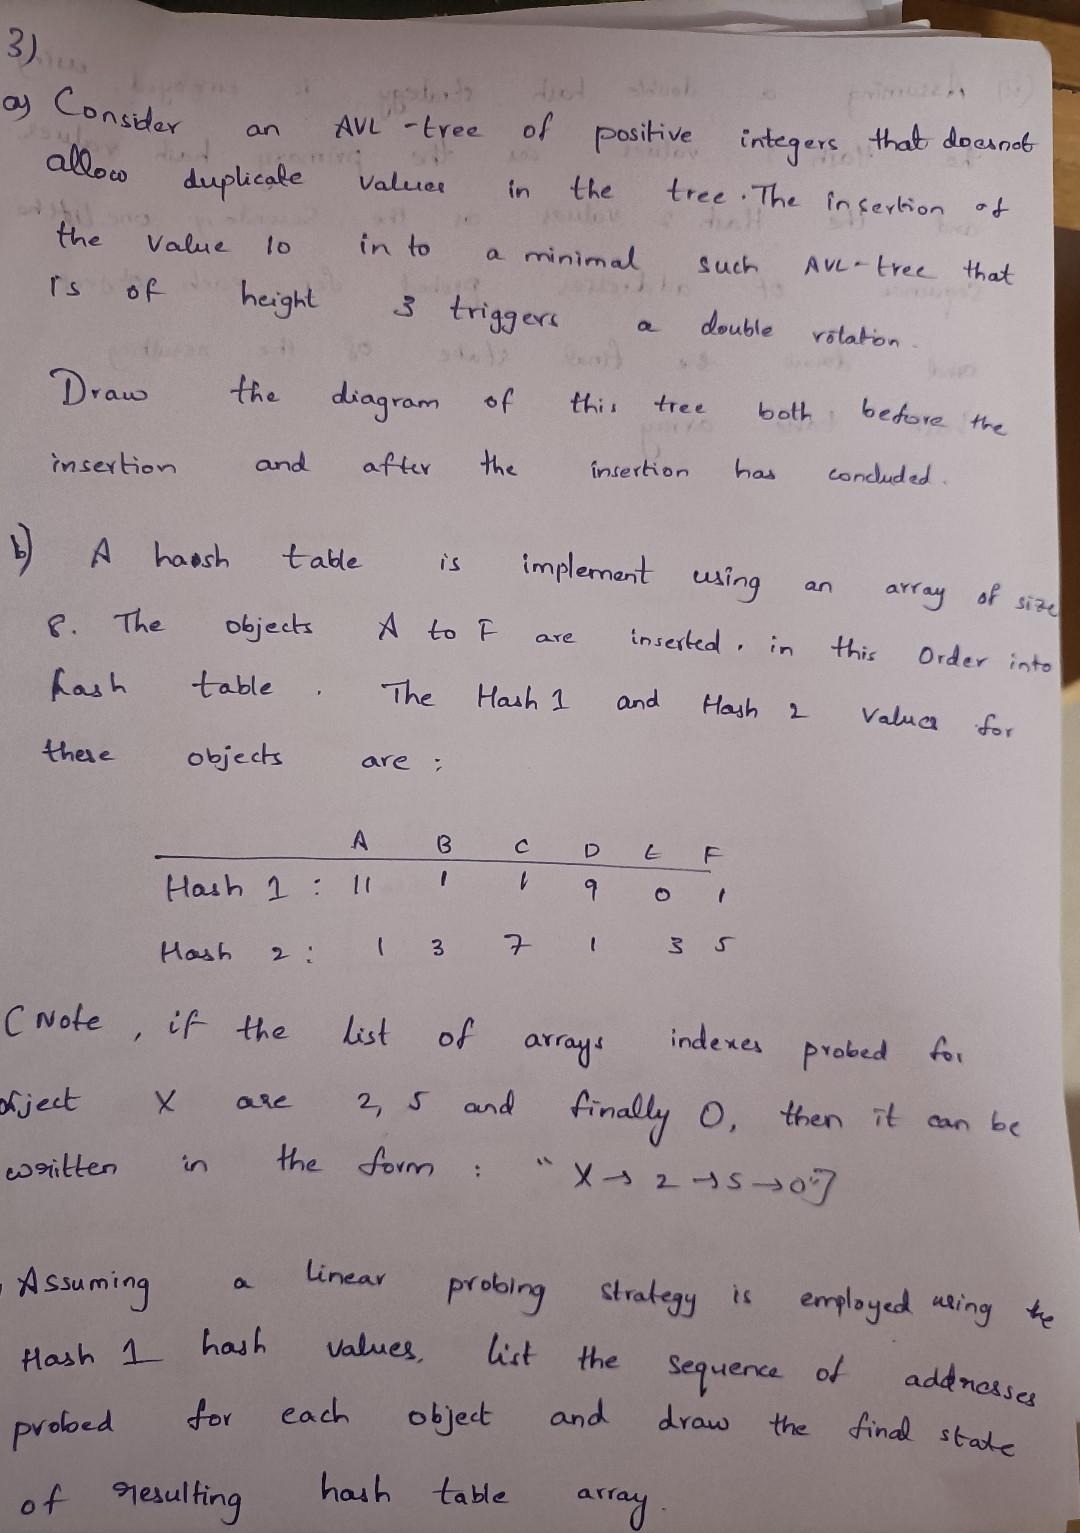 3)
a) Consider an AVL -tree of positive integers that doesnot
allow duplicate values in the tree. The insertion of
the value 10 in to a minimal such AVL-tree that
is of height 3 triggers a double rotation.
Draw the diagram of this tree both before the
insertion and after the insertion has concluded.
b) A haash table is implement using an array of size
8. The objects A to F are inserted, in this Order into
hash table. The Hash 1 and Hash 2 Values for
these objects are :
A B C D E F
Hash 1 : 11 1 1 9 0 1
Hash 2 : 1 3 7 1 3 5
( Note, if the list of arrays indexes probed for
object X are 2, 5 and finally 0, then it can be
written in the form : " X → 2 → 5 → 0"]
Assuming a linear probing strategy is employed using the
Hash 1 hash values, list the sequence of addresses
probed for each object and draw the final state
of resulting hash table array.